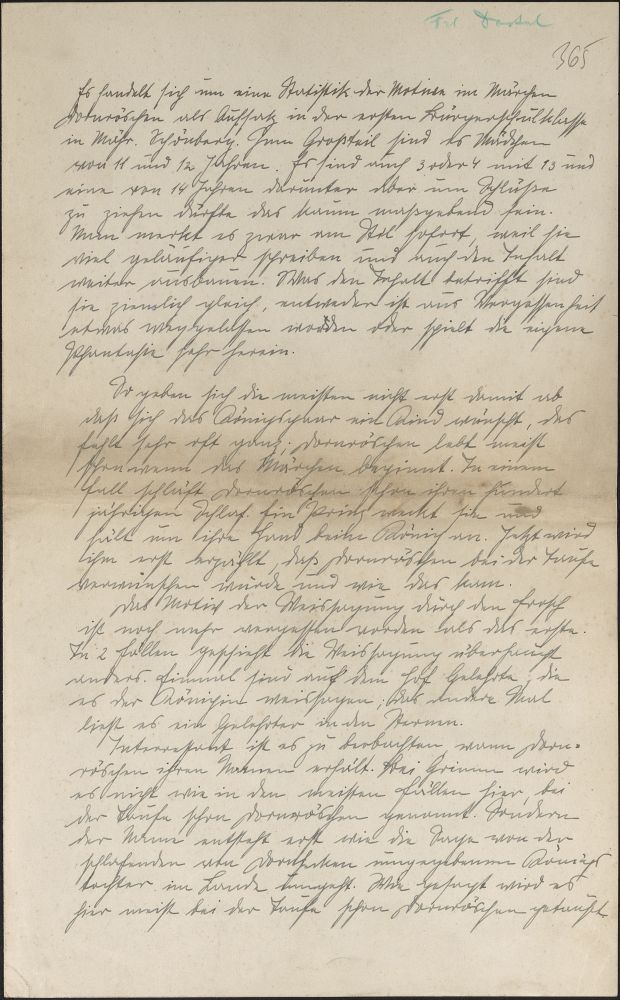 Frl. Dostal
365
Es handelt sich um eine Statistik der Motive im Märchen
Dornröschen als Aufsatz in der ersten Bürgerschulklasse
in Mähr. Schönberg. Zum Großteil sind es Mädchen
von 11 und 12 Jahren. Es sind auch 3 oder 4 mit 13 und
eine von 14 Jahren darunter aber um Schlüße
zu ziehen dürfte das kaum maßgebend sein.
Man merkt es zwar am Stil sofort, weil sie
viel geläufiger schreiben und auch den Inhalt
weiter ausbauen. Was den Inhalt betrifft sind
sie ziemlich gleich, entweder ist aus Vergessenheit
etwas weggelassen worden oder spielt die eigene
Phantasie sehr herein.
So geben sich die meisten nicht erst damit ab
daß sich das Königspaar ein Kind wünscht, das
fehlt sehr oft ganz; Dornröschen lebt meist
schon wenn das Märchen beginnt. In einem
Fall schläft Dornröschen schon ihren hundert
jährigen Schlaf. Ein Prinz weckt sie und
hält um ihre Hand beim König an. Jetzt wird
ihm erst erzählt, daß Dornröschen bei der Taufe
verwunschen wurde und wie das kam.
Das Motiv der Weissagung durch den Frosch
ist noch mehr vergessen worden als das erste.
In 2 Fällen geschieht die Weissagung überhaupt
anders. Einmal sind auf dem Hof Gelehrte, die
es der Königin weissagen; das andere Mal
liest es ein Gelehrter in den Sternen.
Interessant ist es zu beobachten, wann Dorn-
röschen ihren Namen erhält. Bei Grimm wird
es nicht wie in den meisten Fällen hier, bei
der Taufe schon Dornröschen genannt. Sondern
der Name entsteht erst wie die Sage von der
schlafenden von Dornhecken umgegebenen Königs
tochter im Lande umgeht. Wie gesagt wird es
hier meist bei der Taufe schon Dornröschen getauft